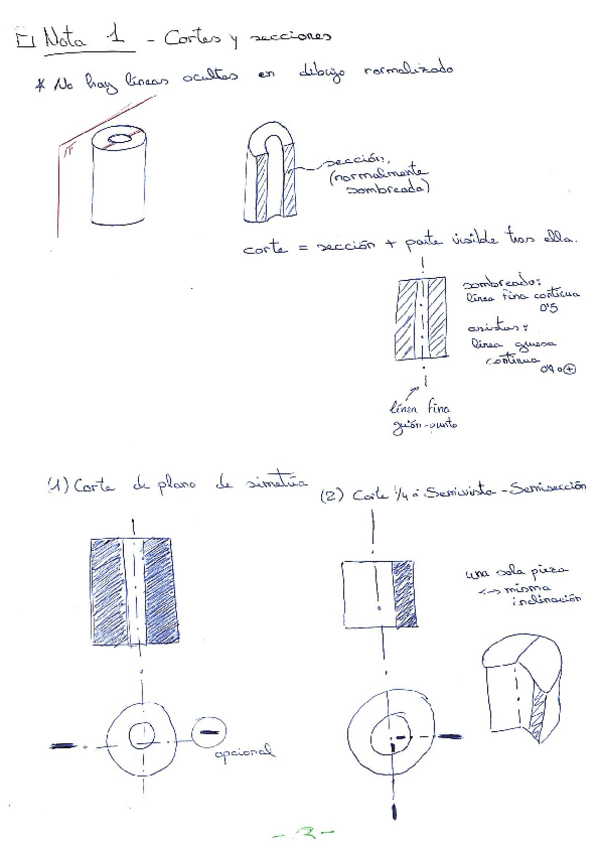 Nota 1 - Cortes y secciones
* No hay líneas ocultas en dibujo normalizado
π
sección,
(normalmente
sombreada)
corte = sección + parte visible tras ella.
sombreado:
línea fina continua
0'5
aristas:
línea gruesa
continua
línea fina
guión-punto
(1) Corte de plano de simetría
(2) Corte 1/4 ó Semivista - Semisección
una sola pieza
<-> misma
inclinación
opcional
- 2 -